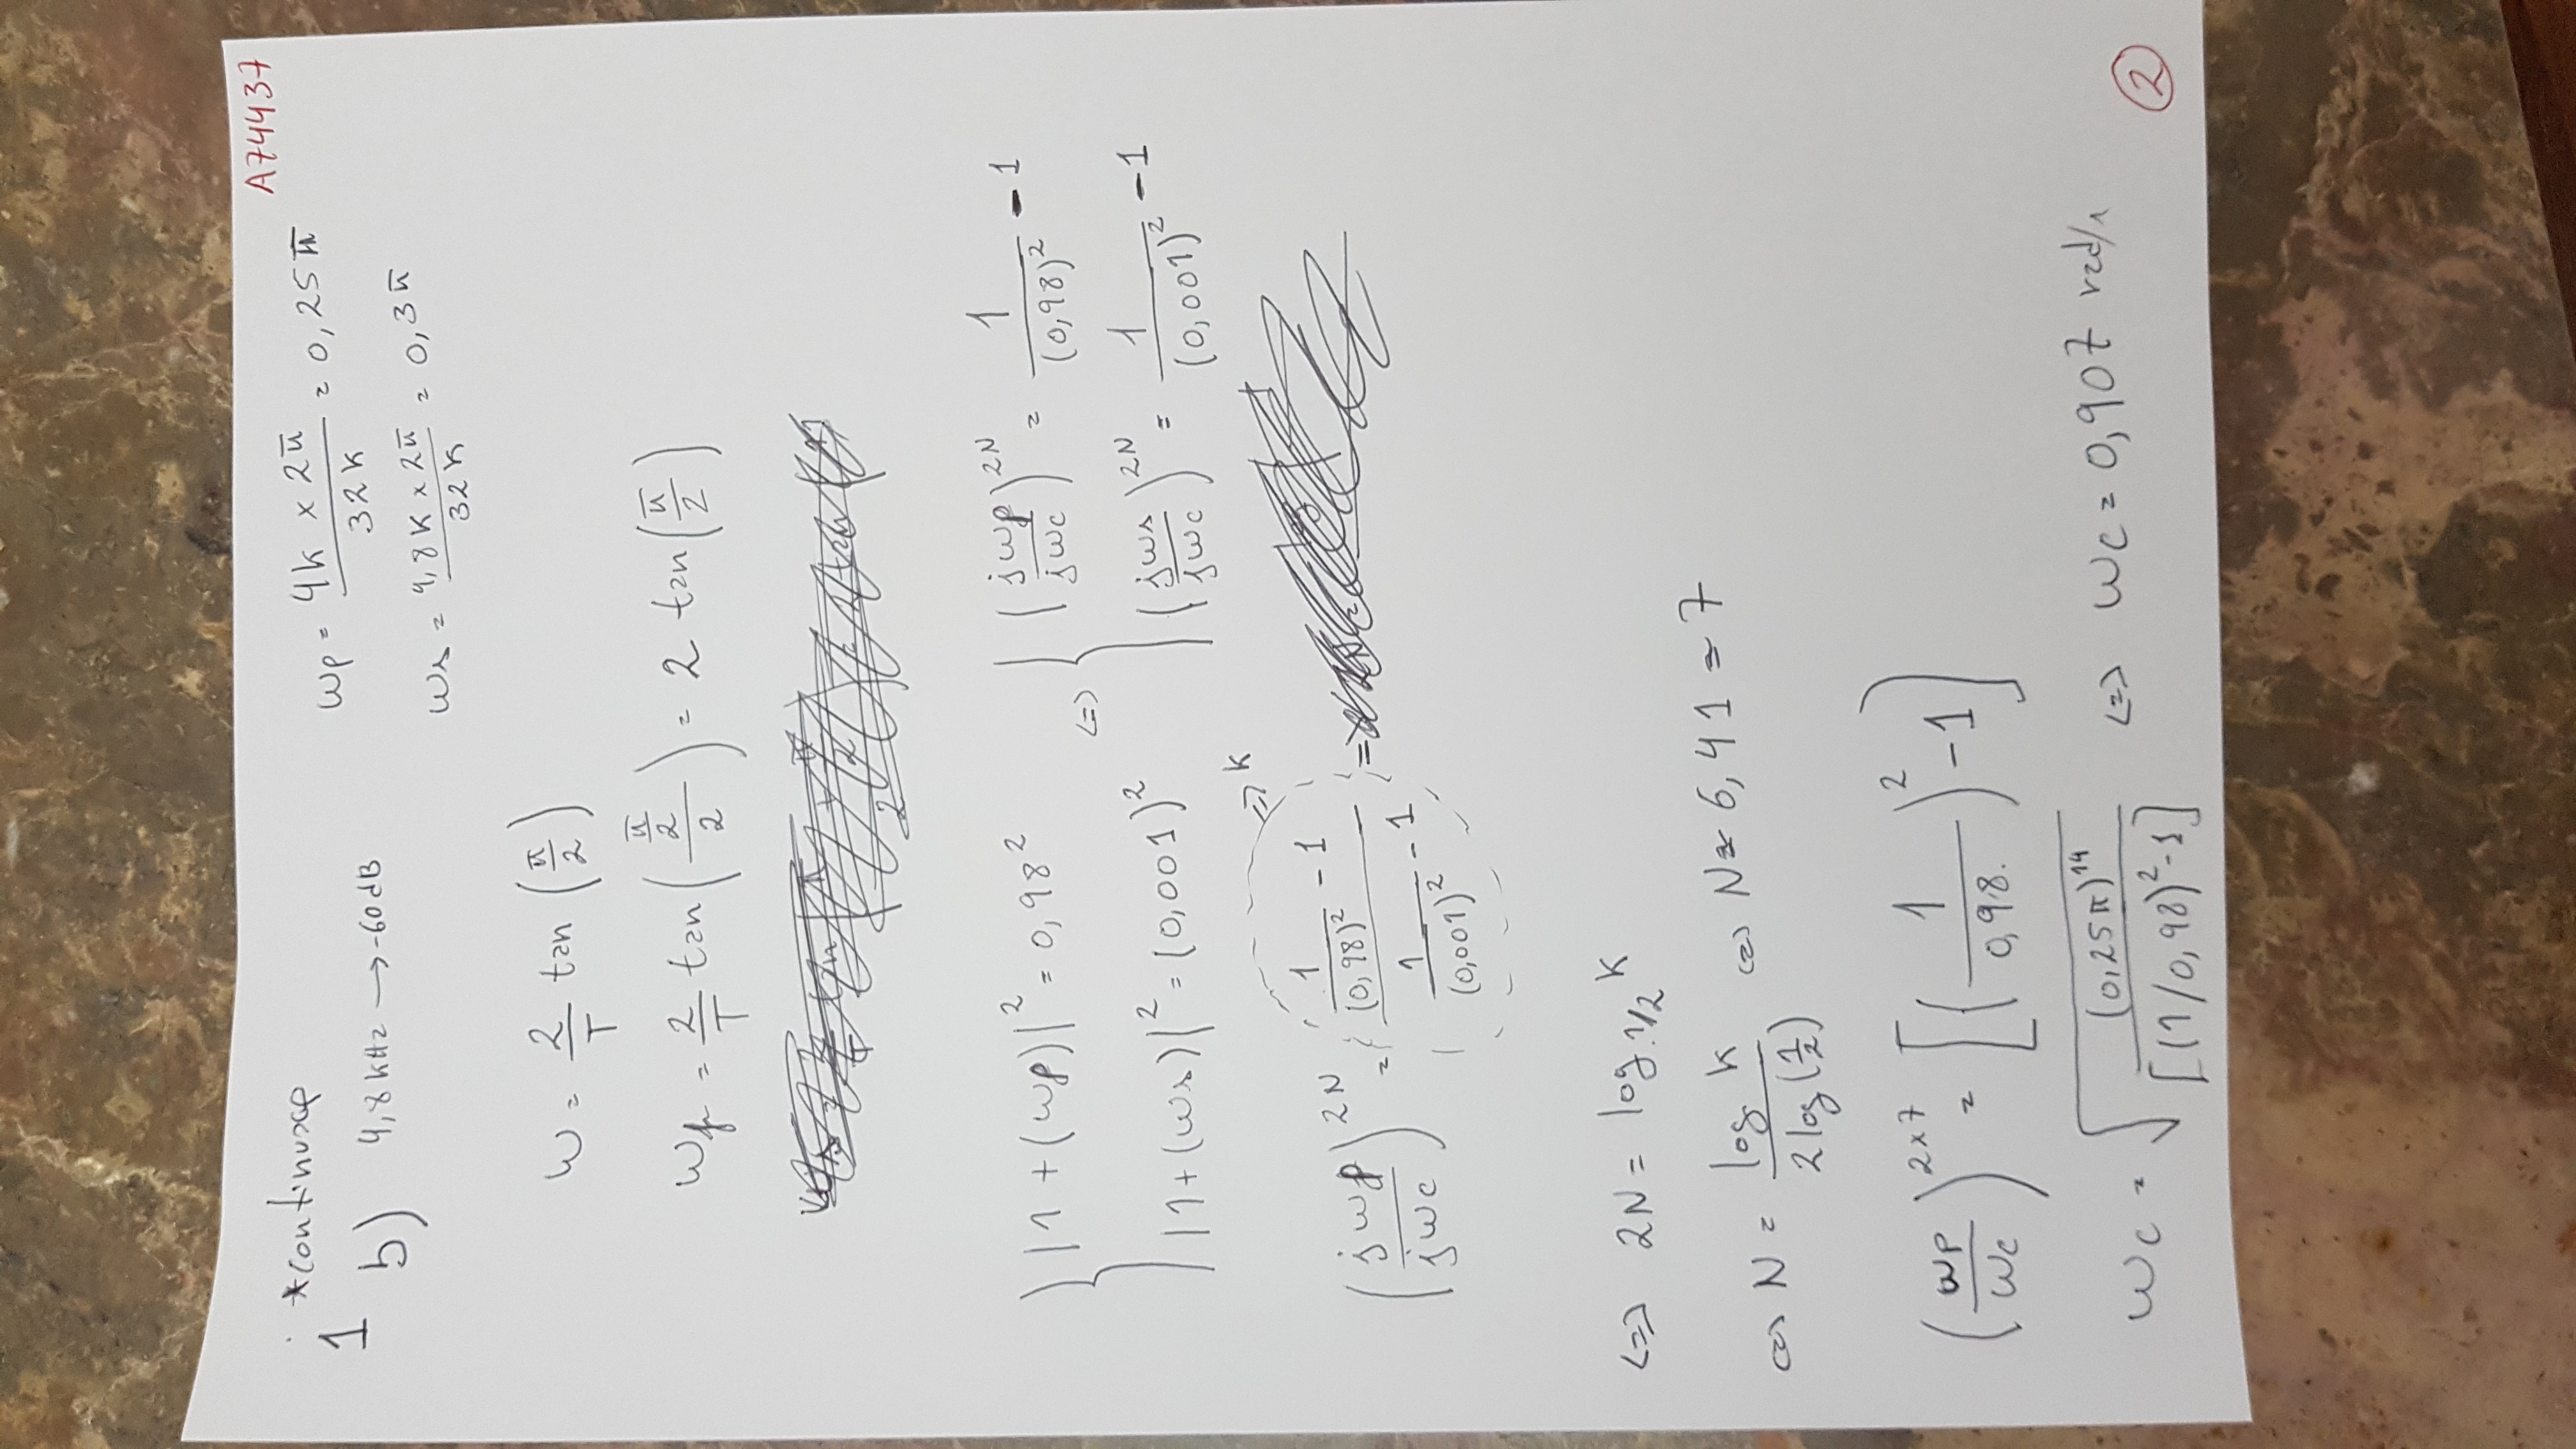 A74437
1 *continuação
b) 4,8 kHz → -60 dB
wp = 4k × 2π / 32k = 0,25π
ws = 4,8k × 2π / 32k = 0,3π
w = 2/T tan (π/2)
wp = 2/T tan ((π/2)/2) = 2 tan (π/2)
{ |1 + (wp)|² = 0,98² <=> { (jwp/jwc)^2N = 1/(0,98)² - 1
|1 + (ws)|² = (0,001)² (jws/jwc)^2N = 1/(0,001)² - 1
(jwp/jwc)^2N = (1/(0,98)² - 1) / (1/(0,001)² - 1) => k =
<=> 2N = log 1/2 k
<=> N = log k / 2 log (1/2) <=> N ≈ 6,41 ≈ 7
(wp/wc)^2×7 = [(1/0,98)² - 1]
wc = √((0,25π)^14 / [(1/0,98)² - 1]) <=> wc = 0,907 rad/s
2